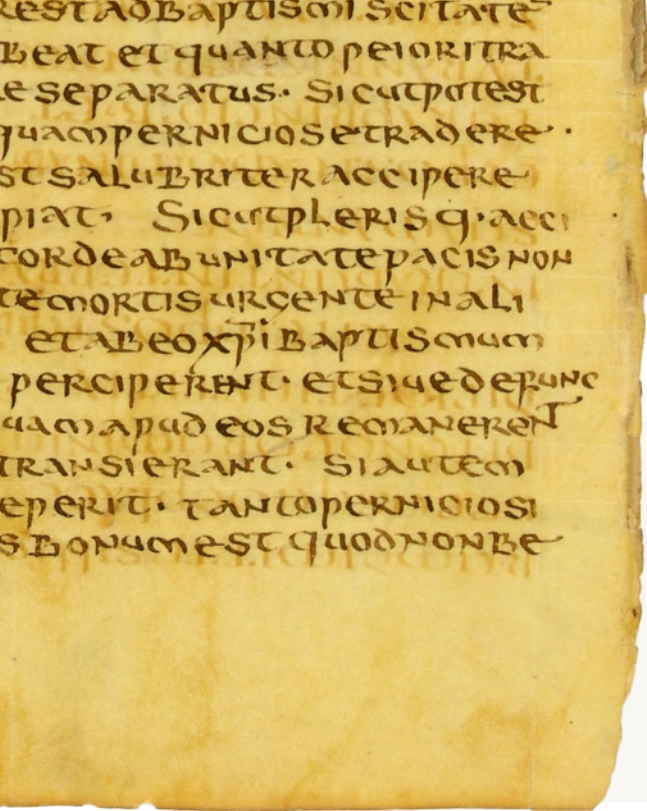 REST AD BAPTISMI SCITATE
BEAT ET QUANTO PEIORI TRA
E SEPARATUS· SICUT POTEST
QUAM PERNICIOSE TRADERE·
ST SALUBRITER ACCIPERE
PIAT· SICUT PLERISQ· ACCI
CORDE AB UNITATE PACIS NON
TE MORTIS URGENTE IN ALI
ET AB EO XPI BAPTISMUM
PERCIPERENT· ET SIUE DEFUNC
UAM APUD EOS REMANERENT
TRANSIERANT· SI AUTEM
EPERIT· TANTO PERNICIOSI
S BONUM EST QUOD NON BE